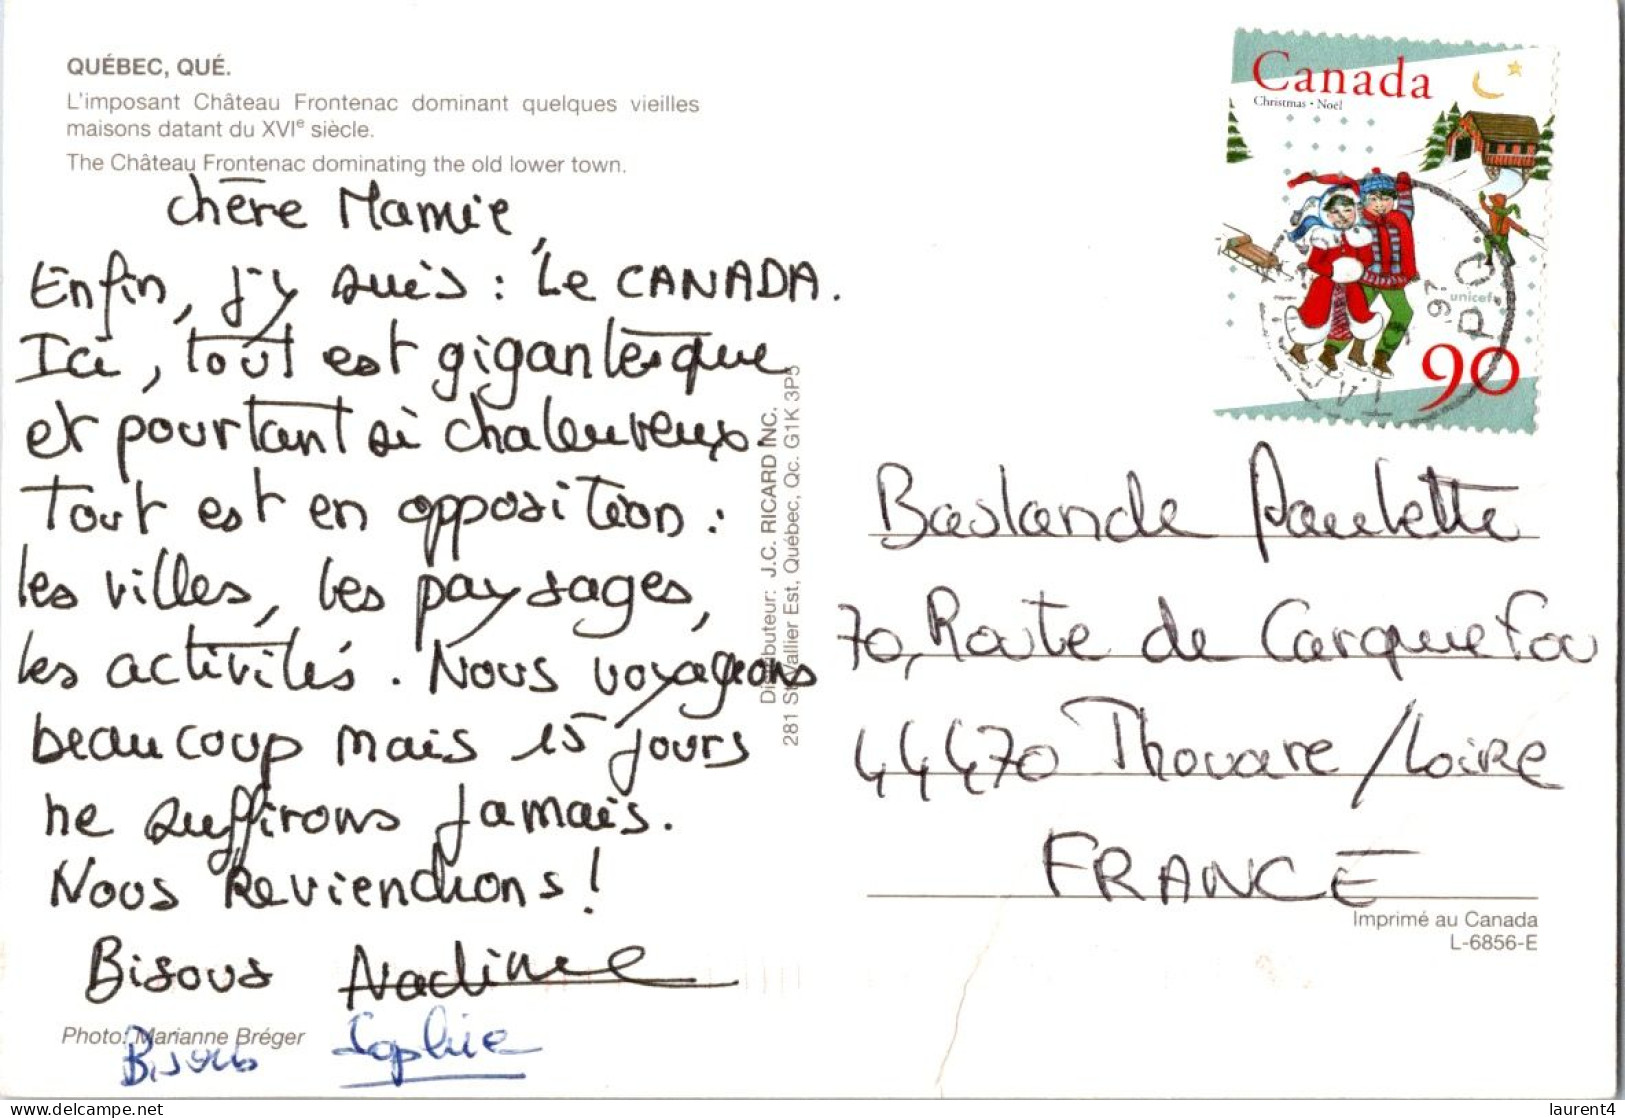 QUÉBEC, QUÉ.
L'imposant Château Frontenac dominant quelques vieilles
maisons datant du XVIe siècle.
The Château Frontenac dominating the old lower town.
Chère Mamie,
Enfin, j'y suis : Le CANADA.
Ici, tout est gigantesque
et pourtant si chaleureux.
Tout est en opposition :
les villes, les paysages,
les activités. Nous voyageons
beaucoup mais 15 jours
ne suffirons jamais.
Nous Reviendrons !
Bisous Nadine
Photo: Marianne Bréger
Bisous Sophie
Distributeur: J.C. RICARD INC.
281 St-Vallier Est, Québec, Qc. G1K 3P5
Canada
Christmas · Noël
unicef
90
97
P.Q.
Baslande Paulette
70, Route de Carquefou
44470 Thouare / Loire
FRANCE
Imprimé au Canada
L-6856-E
delcampe.net
laurent4